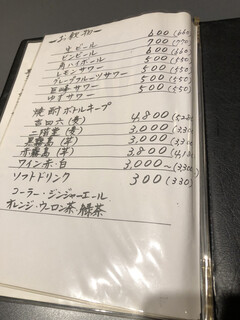 ーお飲物ー
生ビール 600(660)
ビンビール 700(770)
角ハイボール 600(660)
レモンサワー 500(550)
グレープフルーツサワー 500(550)
巨峰サワー 500(550)
ゆずサワー 500(550)
焼酎ボトルキープ
吉四六(麦) 4,800(528
二階堂(麦) 3,000(3,30
黒霧島(芋) 3,000(3,300
赤霧島(芋) 3,800(4,18
ワイン赤・白 3,000〜(3,300
ソフトドリンク 300(330)
コーラー・ジンジャーエール
オレンジ・ウーロン茶 緑茶